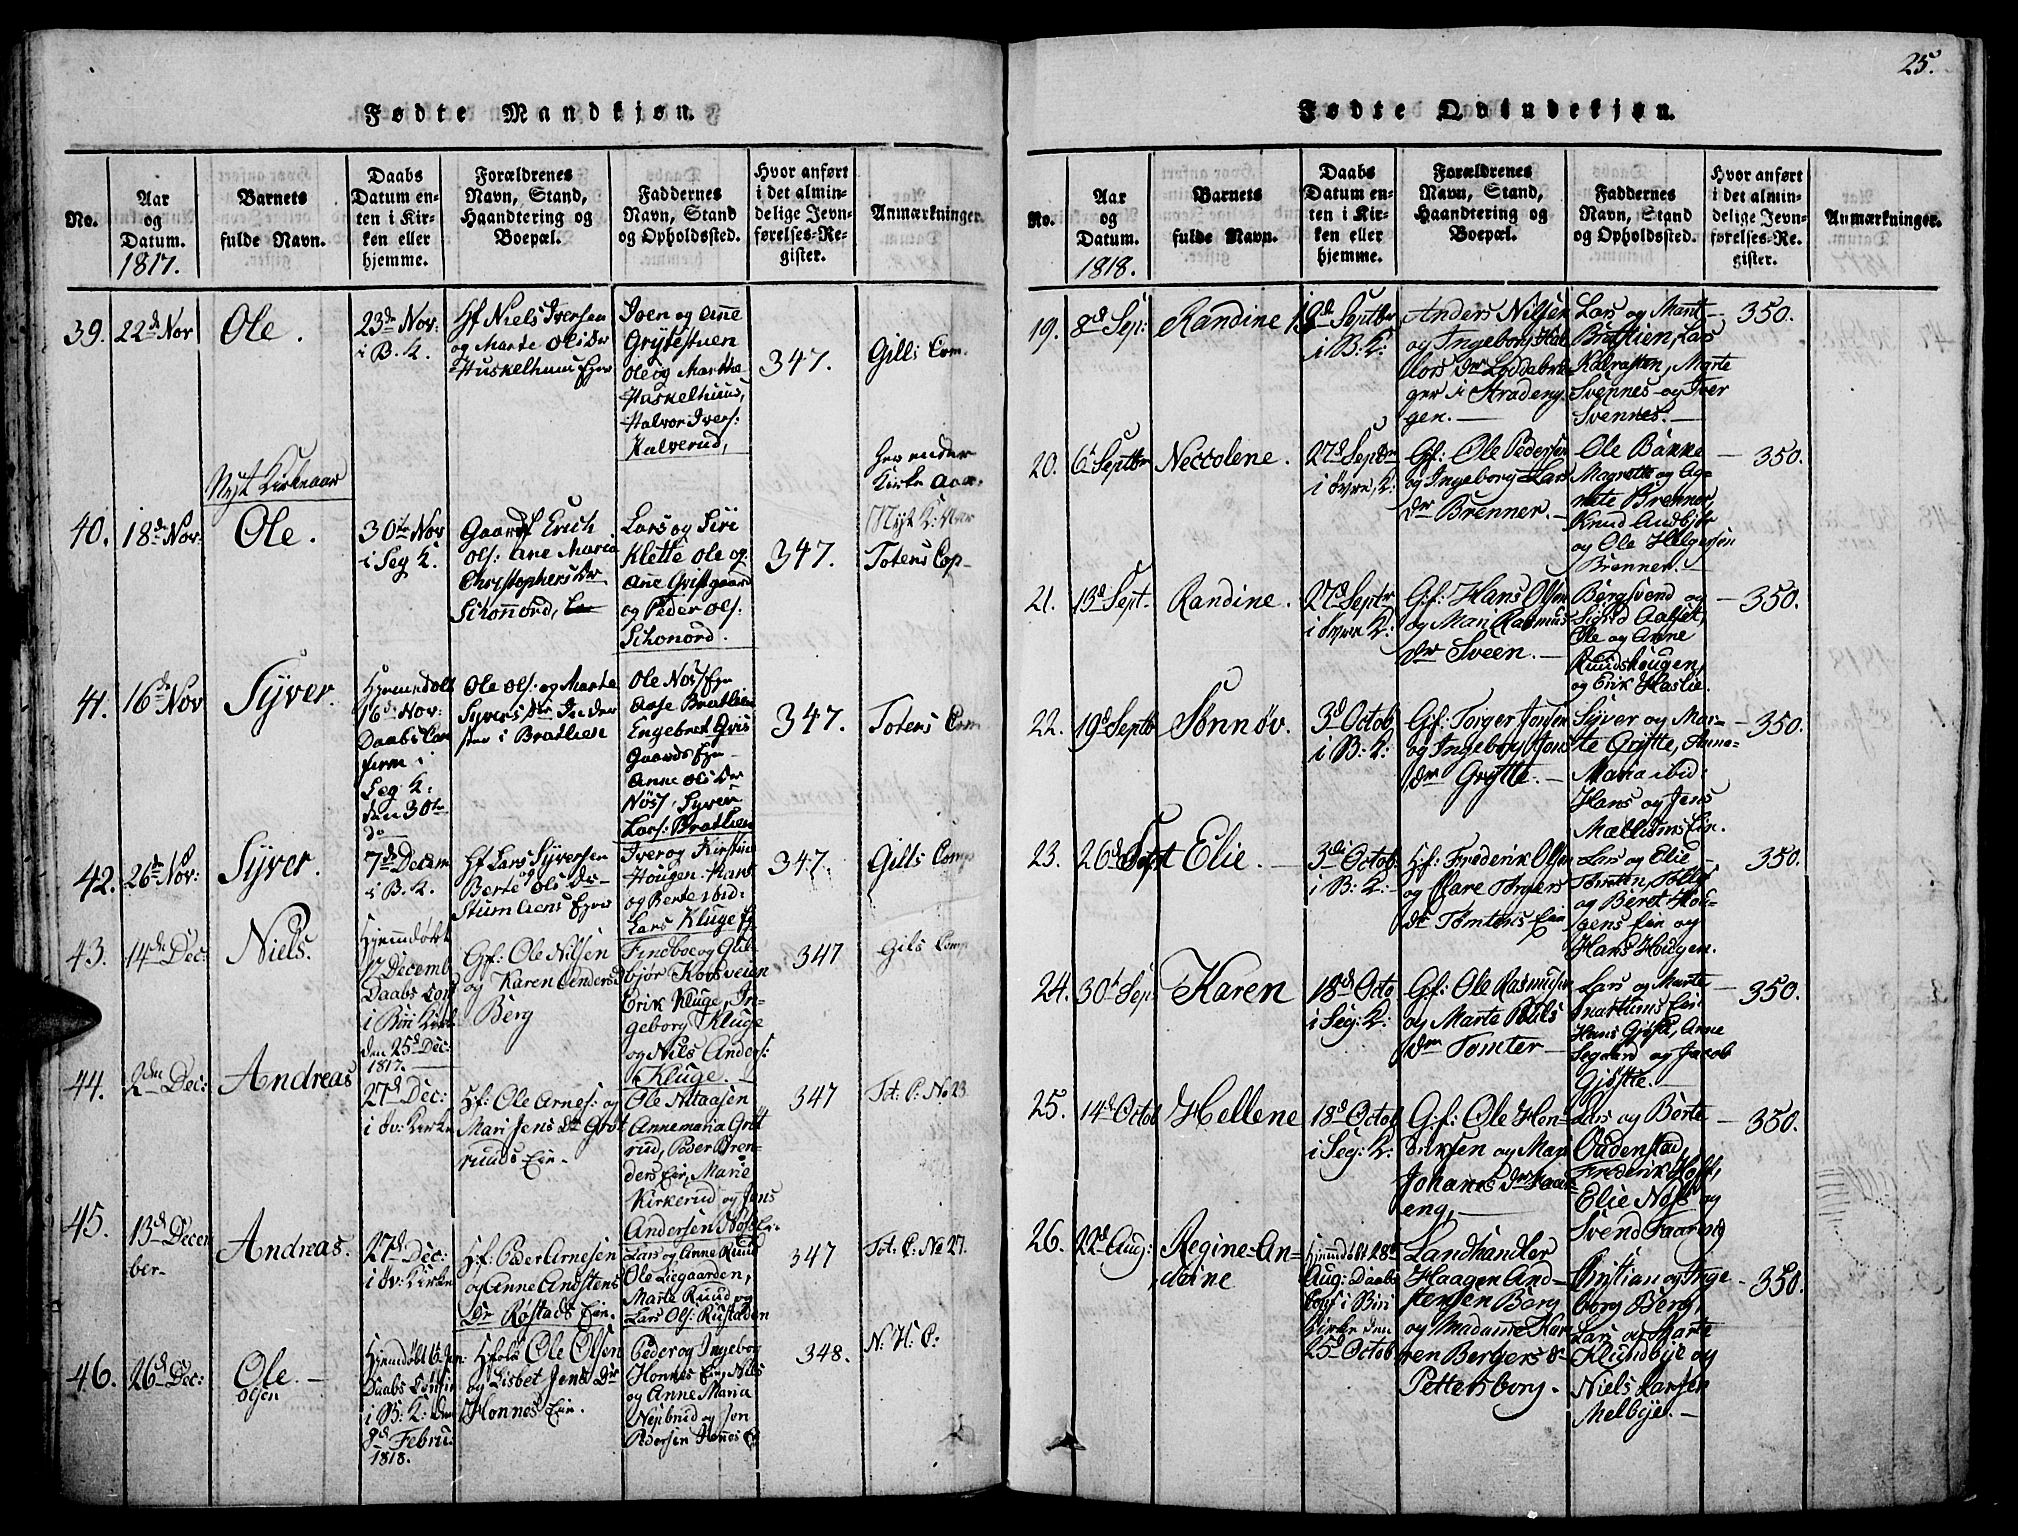 25.
Fødte Mandkjøn.
No.
Aar
og
Datum.
1817.
Barnets
fulde Navn.
Daabs
Datum en-
ten i Kir-
ken eller
hjemme.
Forældrenes
Navn, Stand,
Haandtering og
Boepæl.
Faddernes
Navn, Stand
og Opholdssted.
Hvor anført
i det almin-
delige Jevn-
førelses-Re-
gister.
Anmærkninger.
39.
22de Nov
Ole.
23de Nov:
i B. K.
Hf Niels Iversen
og Marte Olsdr
Huskelhuus Eyer
Iven og Ane
Grytestuen
Ole og Marthe
Huskelhuus,
Halvor Ivers:
Halverud,
347.
Gills Com.
Nyt Kirkeaar
her ender
Kirke Aar.
40.
18de Nov:
Ole.
30te Nov
i Seg K.
Gaardf Erich
Ols: Ane Maria
Christophersdr
Schonord,
Lars og Siri
Klette Ole og
Ane
og Peder Ols:
Schonord.
347.
Nyt K: Aar
Totens Cop
41.
16de Nov
Syver.
Hjemmdøbt
16de Nov:
Daabs Con
firm i
Seg K:
den 30te
do
Ole Ols: og Marte
Syversdr Inder
ster i Bratlien
Ole Nøss Eye
Aase Bratlien
Engebret
Gaards Eye
Anne Olsdr
Nøss, Syver
Lars: Bratlien
347.
Totens Com
42.
26de Nov:
Syver.
7de Decem
i B. K.
Hf Lars Syversen
og
Berte Ols Dr
Stumliens Eyer
Iver og Kirstine
Hougen. Hans
og Berte ibid:
Lars Kluge
347.
Gills Comp
43.
14de Dec:
Niels.
Hjemmdøbt
17 Decemb
Daabs Conf
i Biri Kirk
den 25d Dec:
1817.
Gf: Ole Nilsen
og Karen Andersd
Berg
Findboe og Gul-
bjør Koosveien
Erik Kluge, In-
geborg Kluge
og Nils Anders:
Kluge.
347
Gils Comp
44.
2den Dec:
Andreas
27de Dec:
i Øv: Kirke
Hf: Ole Arnes: og
Mari Jens Dr Grøt
ruuds Eie.
Ole Nitaasen
Annemaria Gröt
rud, Peder Bren-
ders Eie, Marie
Kirkerud og Jens
Andersen Nøss Ei.
347
Tot: C: No 23
45.
13de Decem
ber.
Andreas.
27de Dec:
i Øv: Kirke
Hf: Peder Arnesen
og Anne Anstens
Dr Røstads Eie.
Lars og Anne Ruud
Ole Liegaarden,
Marte Ruud og
Lars Ols: Rustaden
347
Tot: C: No 27.
46.
26de Dec:
Ole
Olsen
Hjemdöbt
Daabs Confir
i B: K: den
8d Febru:
1818.
Hfolk Ole Olsen
og Lisbet Jens Dr
Honnes Eie.
Peder og Ingeborg
Honnes Eie, Nils
og Anne Maria
og Jon
Pedersen Honnes E
348.
N: H: C:
Fødte Qvindekjøn.
No.
Aar
og
Datum.
1818.
Barnets
fulde Navn.
Daabs
Datum en-
ten i Kir-
ken eller
hjemme.
Forældrenes
Navn, Stand,
Haandtering og
Boepæl.
Faddernes
Navn, Stand
og Opholdssted.
Hvor anført
i det almin-
delige Jevn-
førelses-Re-
gister.
Anmærkninger.
19.
8d Sep:
Randine
13d Septbr
i B: K:
Anders Nilsen
og Ingeborg Hal
vors Dr Loddebru
ger i Stradeng
gen.
Lars og Marit
Bratlien, Lars
Kalrasten, Marte
Svennes og Iver
Svennes.
350.
20.
6t Septbr
Niccolene.
27d Septbr
i Øvre, K:
Gf: Ole Pedersen
og Ingeborg Lars
Dr Brenner.
Ole Bakke
Magrette og Ag-
nete Brenner,
Knud Audbjør
og Ole Helgersen
Brenner.
350.
21.
13d Sept.
Randine.
27d Septr
i Øvre K:
Gf: Hans Olsen
og Mari Rasmus
Dr Sveen.
Bergsvend og
Sigrid Aalset,
Ole og Anne
Ruudshougen,
og Erik Haslie.
350.
22.
19d Septb
Sönnöv.
3d Octob
i B: K:
Gf: Torger Jonsen
og Ingeborg Jons
Dr Grytte.
Syver og Mar-
te Grytte, Anne-
Maria ibid:
Hans og Jens
Mælliums Eie.
350.
23.
26d Sept
Elie.
3d Octob
i B: K:
Hf: Frederik Olsen
og Clare Torgers
Dr Tømtens Eie
Lars og Elie
Tomten, Peder
og Beret Hou-
gens Eie og
Hans Hougen.
350.
24.
30t Sep:
Karen
18d Octo
i Seg: K:
Gf: Ole Rasmusen
og Marte Pouls
Dr Tømter
Lars og Marte
Snartums Eie:
Hans Gjøste, Anne
Segaard og Jacob
Gjöstte.
350.
25.
14d Octob
Hellene
18d Octob
i Seg: K:
Gf: Ole Hen-
driksen og Mari
Johanes Dr Faar-
eng,
Lars og Börte
Oudenstad
Frederik Hoft,
Elie Nøss og
Svend Faareng
350.
26.
22d Aug:
Regine An-
drine
Hjemdöbt 28d
Aug: Daabs
Conf i Biri
Kirke den
25d Octob
Landhandler
Haagen And-
stensen Berg
og Madamme Kar
ren Bergers Dr
Pettersborg.
Christian og Inge
borg Berg,
Lars og Marte
Klundbye og
Niels Larsen
Melbye.
350.